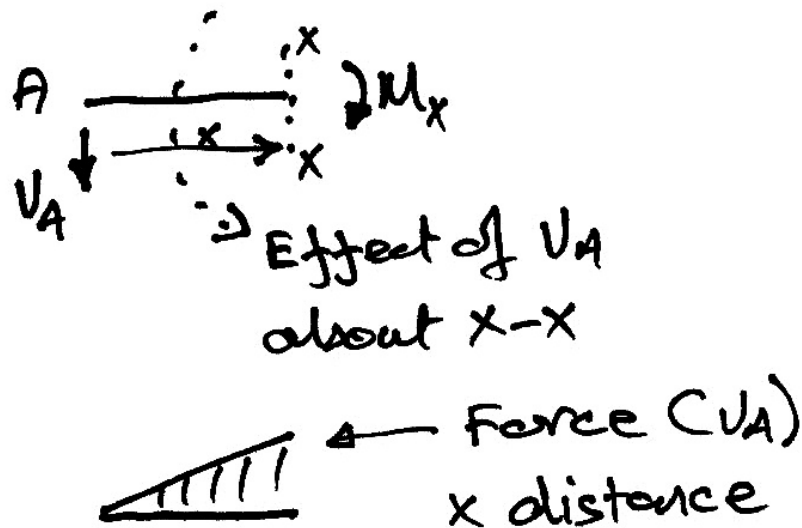 x
A
Mx
x
x
VA
Effect of VA
about x-x
Force (VA)
x distance